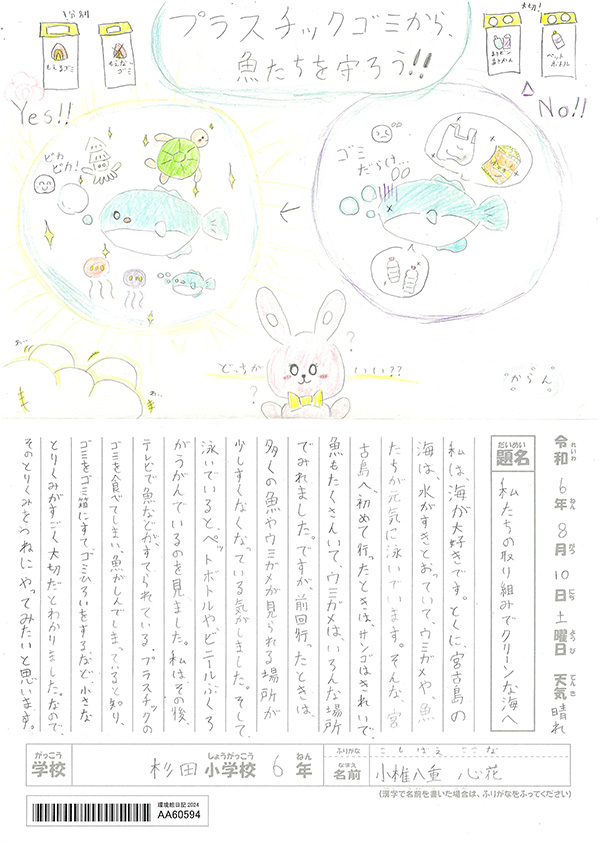 プラスチックゴミから、
魚たちを守ろう!!
分別
もえるゴミ
もえないゴミ
大切!
ペットボトル
Yes!!
No!!
ピカピカ!
ゴミだらけ…
どっちがいい??
からん
令和6年8月10日土曜日 天気 晴れ
れいわ ねん がつ にち ようび てんき
だいめい
題名
私たちの取り組みでクリーンな海へ
私は、海が大好きです。とくに、宮古島の
海は、水がすきとおっていて、ウミガメや、魚
たちが元気に泳いでいます。そんな、宮
古島へ、初めて行ったときは、サンゴはきれいで、
魚もたくさんいて、ウミガメは、いろんな場所
でみれました。ですが、前回行ったときは、
多くの魚やウミガメが見られる場所が
少しすくなくなっている気がしました。そして、
泳いでいると、ペットボトルやビニールぶくろ
がうかんでいるのを見ました。私は、その後、
テレビで魚などがすてられている、プラスチックの
ゴミを食べてしまい、魚がしんでしまっていると知り、
ゴミをゴミ箱にすて、ゴミひろいをするなど、小さな
とりくみがすごく大切だとわかりました。なので、
そのとりくみをつねにやってみたいと思います。
がっこう
学校
杉田 小学校 6年
しょうがっこう ねん
ふりがな
こしばえ ここな
なまえ
名前
小椎八重 心花
(漢字で名前を書いた場合は、ふりがなをふってください)
環境絵日記2024
AA60594